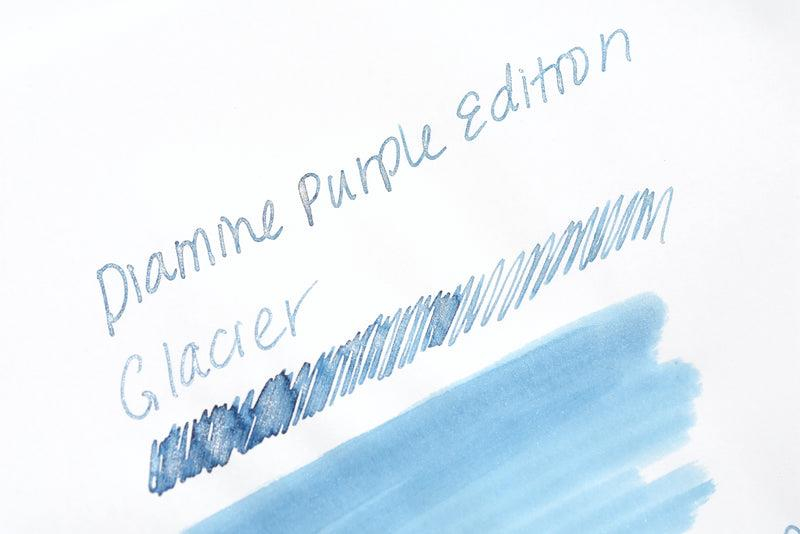 Diamine Purple Edition
Glacier